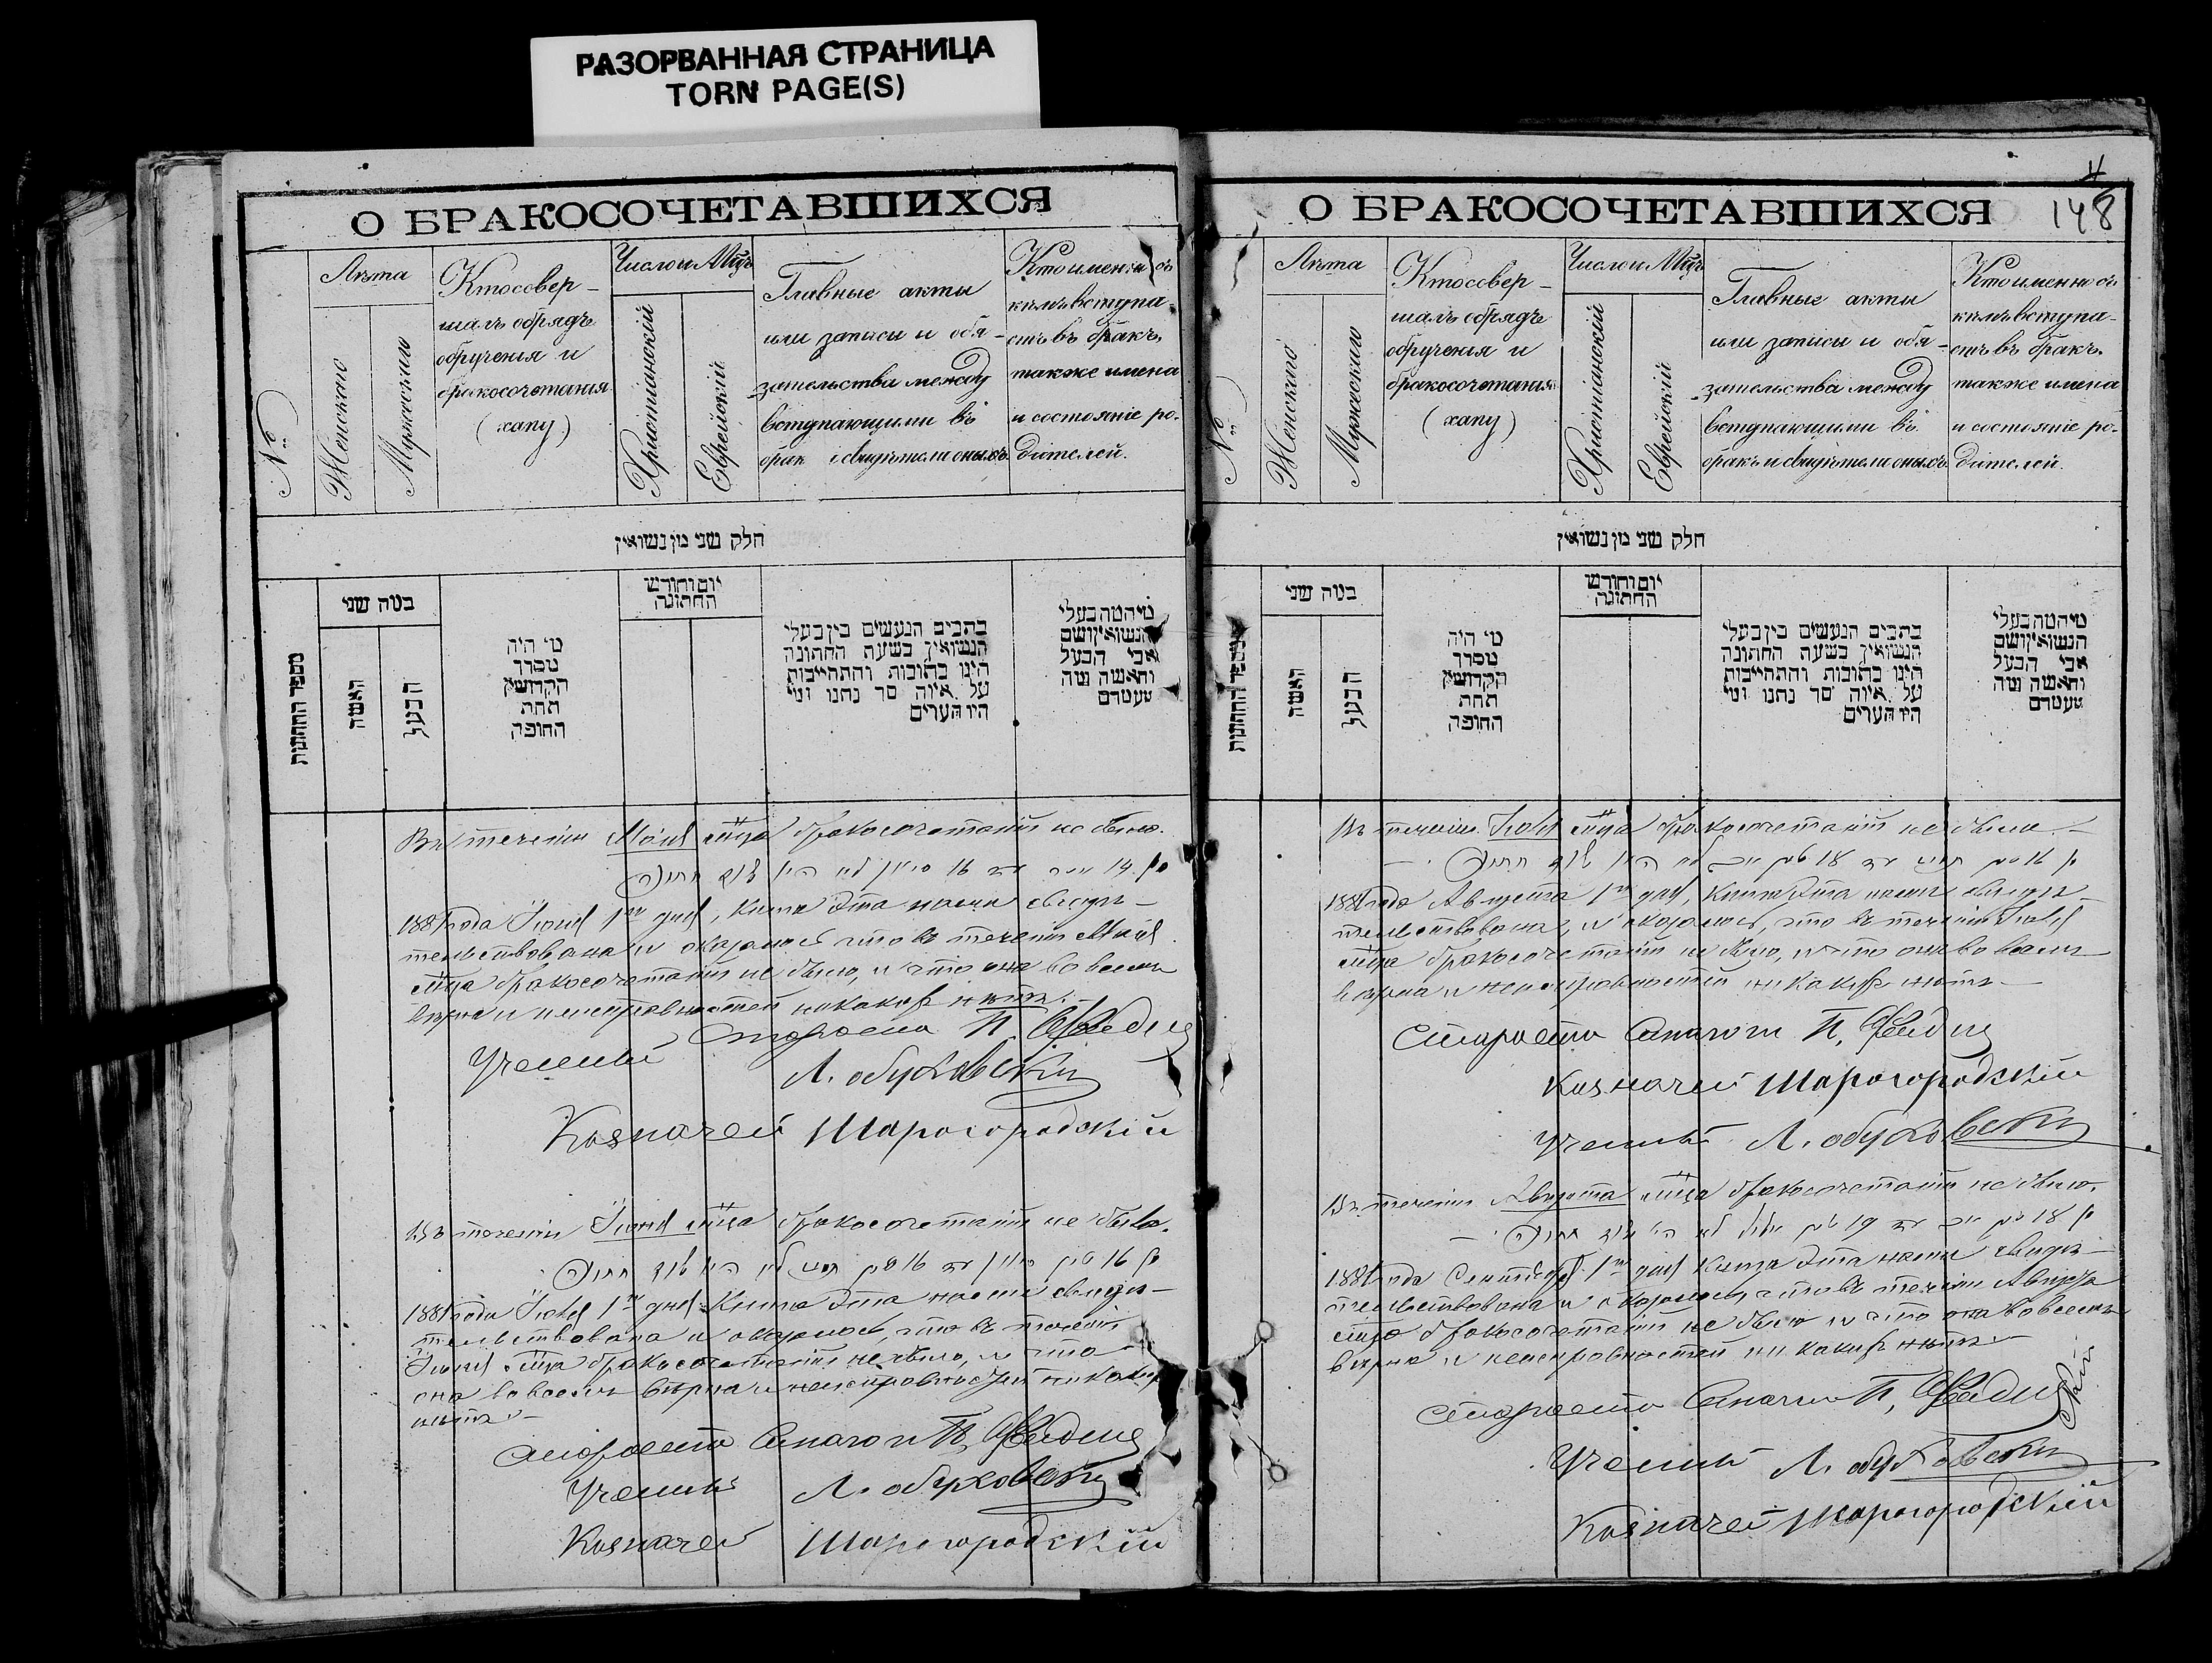 РАЗОРВАННАЯ СТРАНИЦА
TORN PAGE(S)
О БРАКОСОЧЕТАВШИХСЯ
№
Лѣта
Женскаго
Мужескаго
Кто совер-
шалъ обрядъ
обрученія и
бракосочетанія
(хапу)
Число и Мѣцъ
Христіанскій
Еврейскій
Главные акты
или записи и обя-
зательства между
вступающими въ
бракъ и свидѣтели оныхъ.
Кто именно съ
кѣмъ вступа-
етъ въ бракъ,
также имена
и состояніе ро-
дителей.
חלק שני מן נשואין
מספר החתונות
כמה שני
האשה
הבעל
מי היה
מסדר
הקדושין
תחת
החופה
יום וחודש
החתונה
כתבים הנעשים בין בעלי
הנשואין בשעת החתונה
היינו כתובות והתחייבות
על איזה סך נתנו ומי
היו העדים
מי המה בעלי
הנשואין ושם
אבי הבעל
והאשה ומה
מעמדם
Въ теченіи Маія мѣца бракосочетаній не было.
1881 года Іюня 1го дня, Книга эта нами свидѣ-
тельствована и оказалось что въ теченіи Маія
мѣца бракосочетаній не было, и что она во всемъ
вѣрна и неисправностей никакихъ нѣтъ.
Староста П.
Ученый Л. Обуховскій
Казначей Шарогородскій
Въ теченіи Іюня мѣца бракосочетаній не было.
1881 года Іюля 1го дня Книга эта нами свидѣ-
тельствована и оказалось, что въ теченіи
Іюня мѣца бракосочетаній не было, и что
она во всемъ вѣрна и неисправностей никакихъ
нѣтъ.
Староста Синагоги П.
Ученый Л. Обуховскій
Казначей Шарогородскій
О БРАКОСОЧЕТАВШИХСЯ
148
№
Лѣта
Женскаго
Мужескаго
Кто совер-
шалъ обрядъ
обрученія и
бракосочетанія
(хапу)
Число и Мѣцъ
Христіанскій
Еврейскій
Главные акты
или записи и обя-
зательства между
вступающими въ
бракъ и свидѣтели оныхъ.
Кто именно съ
кѣмъ вступа-
етъ въ бракъ,
также имена
и состояніе ро-
дителей.
חלק שני מן נשואין
מספר החתונות
כמה שני
האשה
הבעל
מי היה
מסדר
הקדושין
תחת
החופה
יום וחודש
החתונה
כתבים הנעשים בין בעלי
הנשואין בשעת החתונה
היינו כתובות והתחייבות
על איזה סך נתנו ומי
היו העדים
מי המה בעלי
הנשואין ושם
אבי הבעל
והאשה ומה
מעמדם
Въ теченіи Іюля мѣца бракосочетаній не было.
1881 года Августа 1го дня, Книга эта нами свидѣ-
тельствована, и оказалось, что въ теченіи Іюля
мѣца бракосочетаній не было, и что она во всемъ
вѣрна и неисправностей никакихъ нѣтъ.
Староста Синагоги П.
Казначей Шарогородскій
Ученый Л. Обуховскій
Въ теченіи Августа мѣца бракосочетаній не было.
1881 года Сентября 1го дня Книга эта нами свидѣ-
тельствована и оказалось что въ теченіи Августа
мѣца бракосочетаній не было и что она во всемъ
вѣрна и неисправностей никакихъ нѣтъ.
Староста Синагоги П.
Ученый Л. Обуховскій
Казначей Шарогородскій